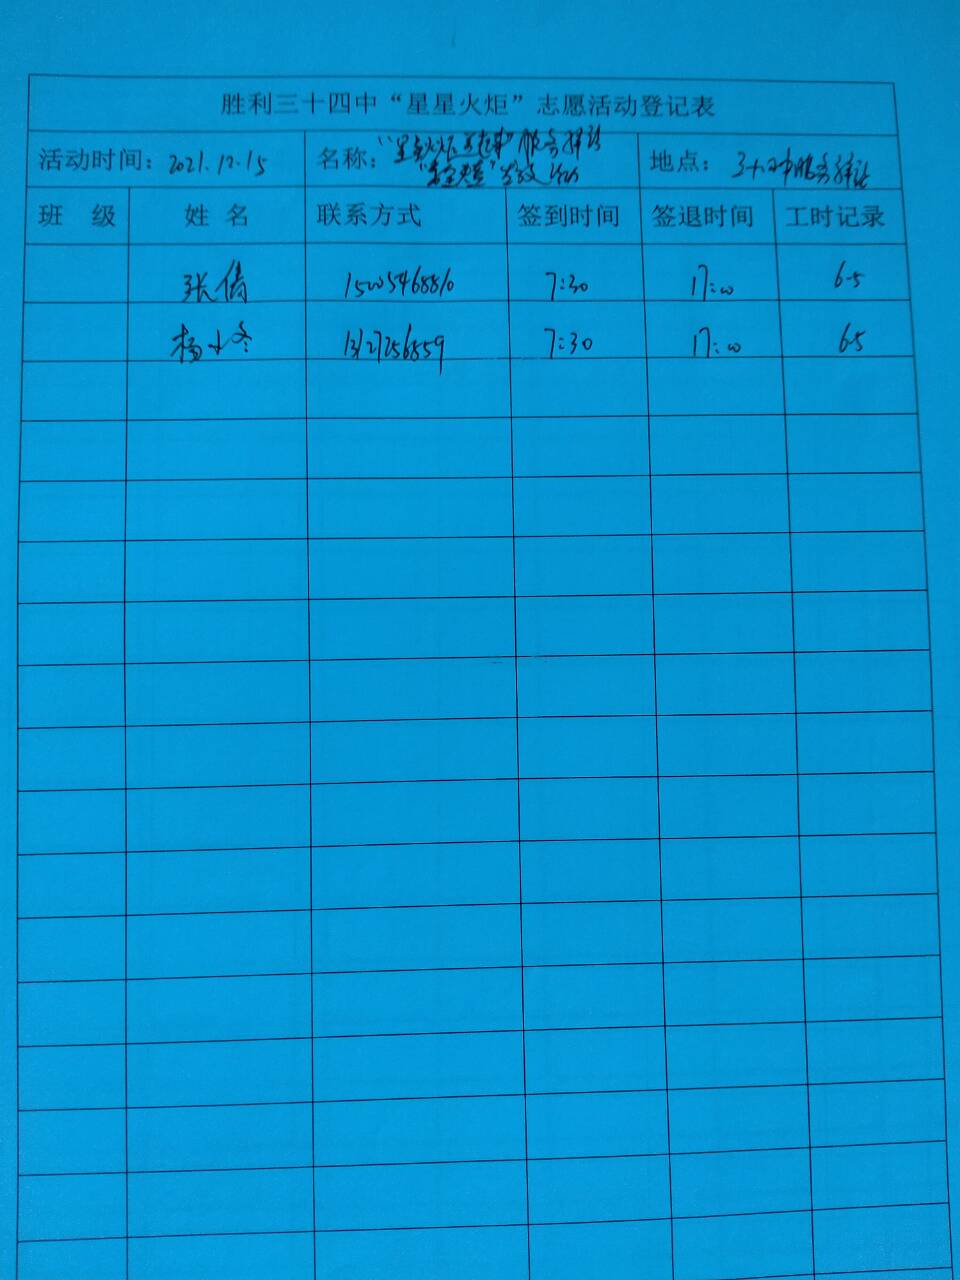 胜利三十四中“星星火炬”志愿活动登记表
活动时间：2021.12.15 名称：“星星火炬 服务驿站 地点：三十四中服务驿站
活动
班 级 姓 名 联系方式 签到时间 签退时间 工时记录
张倩 15005468810 7:30 17:00 6.5
杨小冬 13127256859 7:30 17:00 6.5